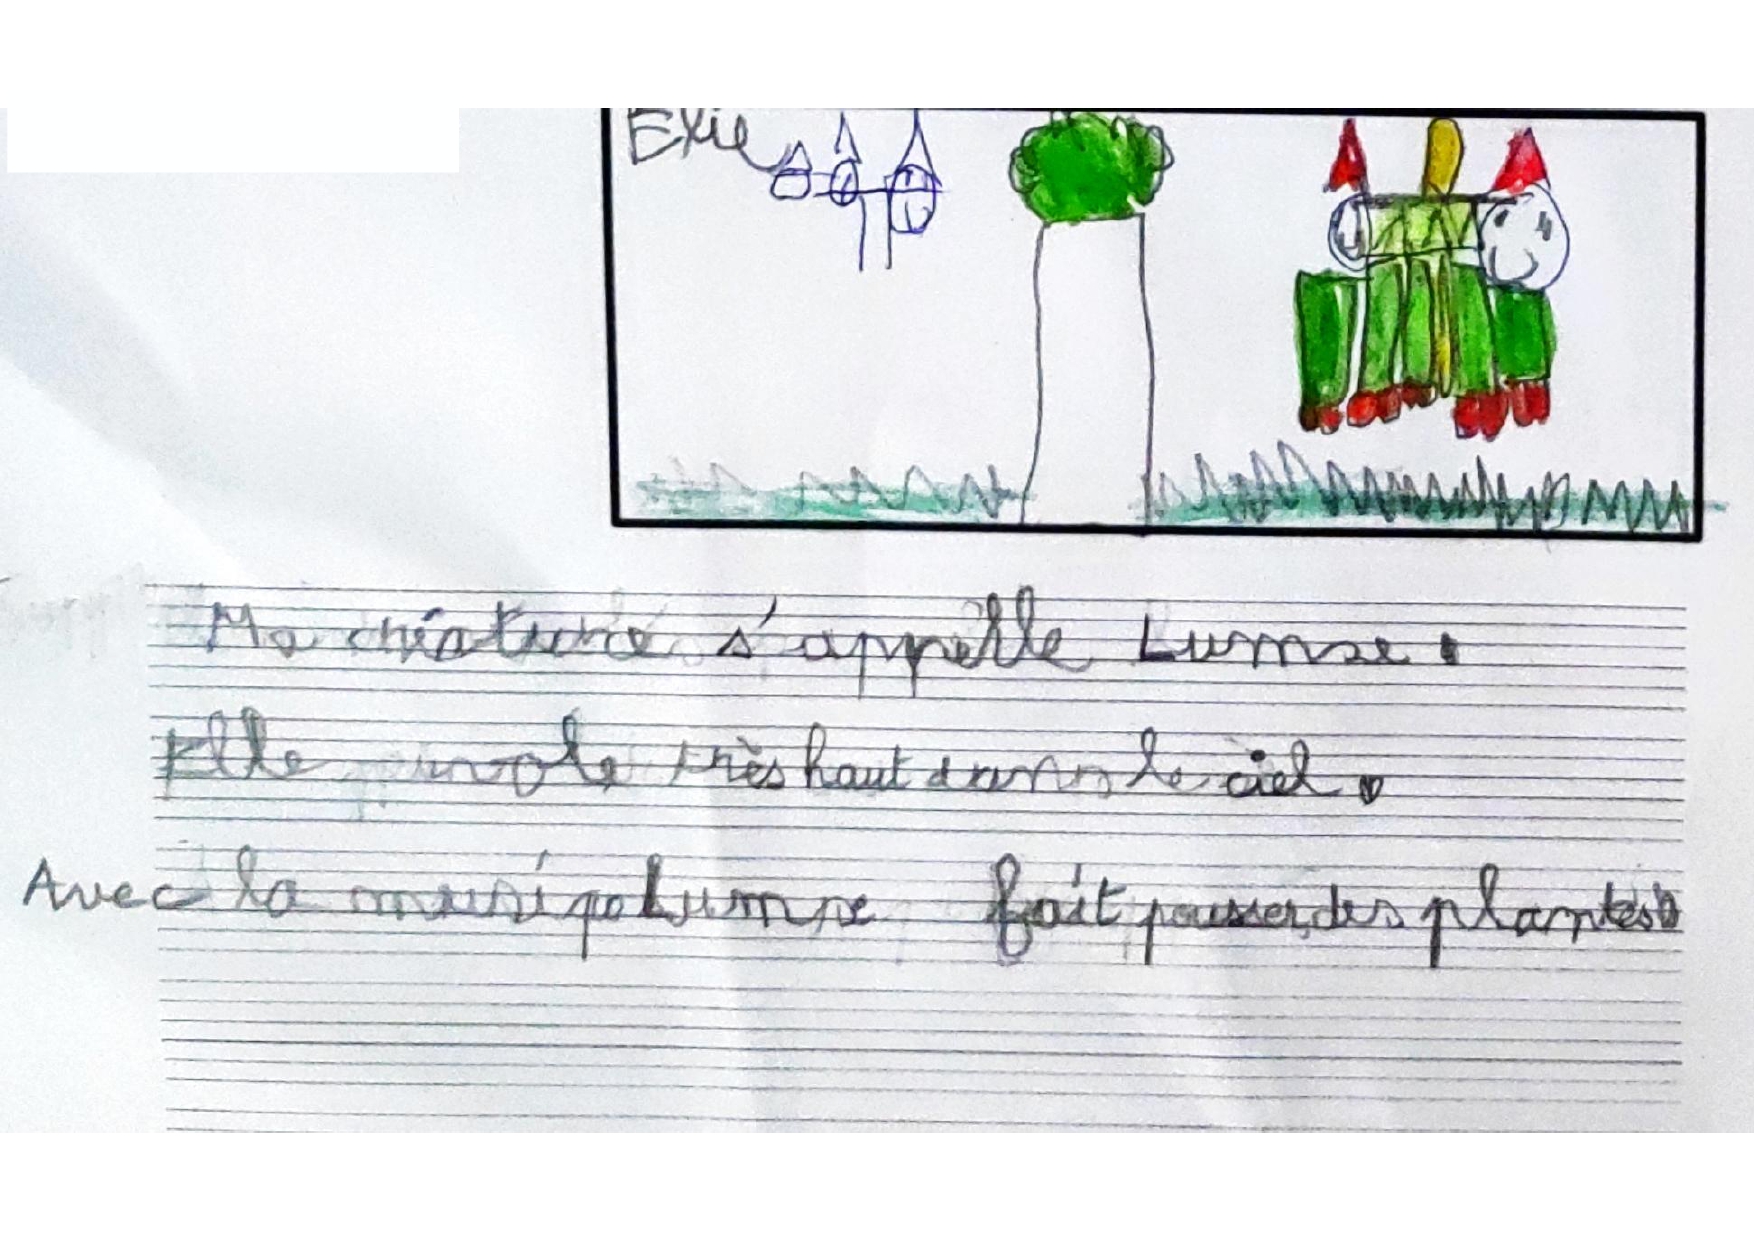 Exie
Ma créature s'appelle Lumze.
Elle vole très haut dans le ciel.
Avec la fait pousser des plantes